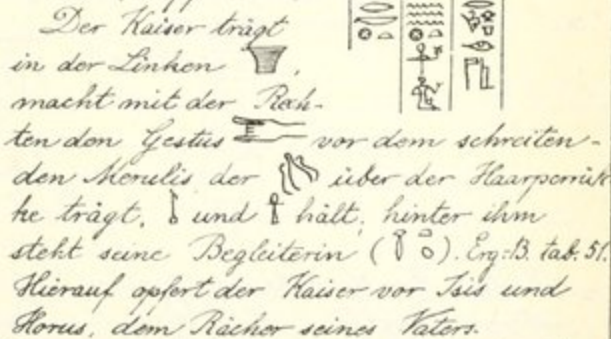 Der Kaiser trägt
in der Linken ,
macht mit der Rech-
ten den Gestus vor dem schreiten-
den Merulis der über der Haarperrük-
ke trägt, und hält; hinter ihm
steht seine Begleiterin ( ). Erg: B. tab. 51.
Hierauf opfert der Kaiser vor Isis und
Horus, dem Rächer seines Vaters.